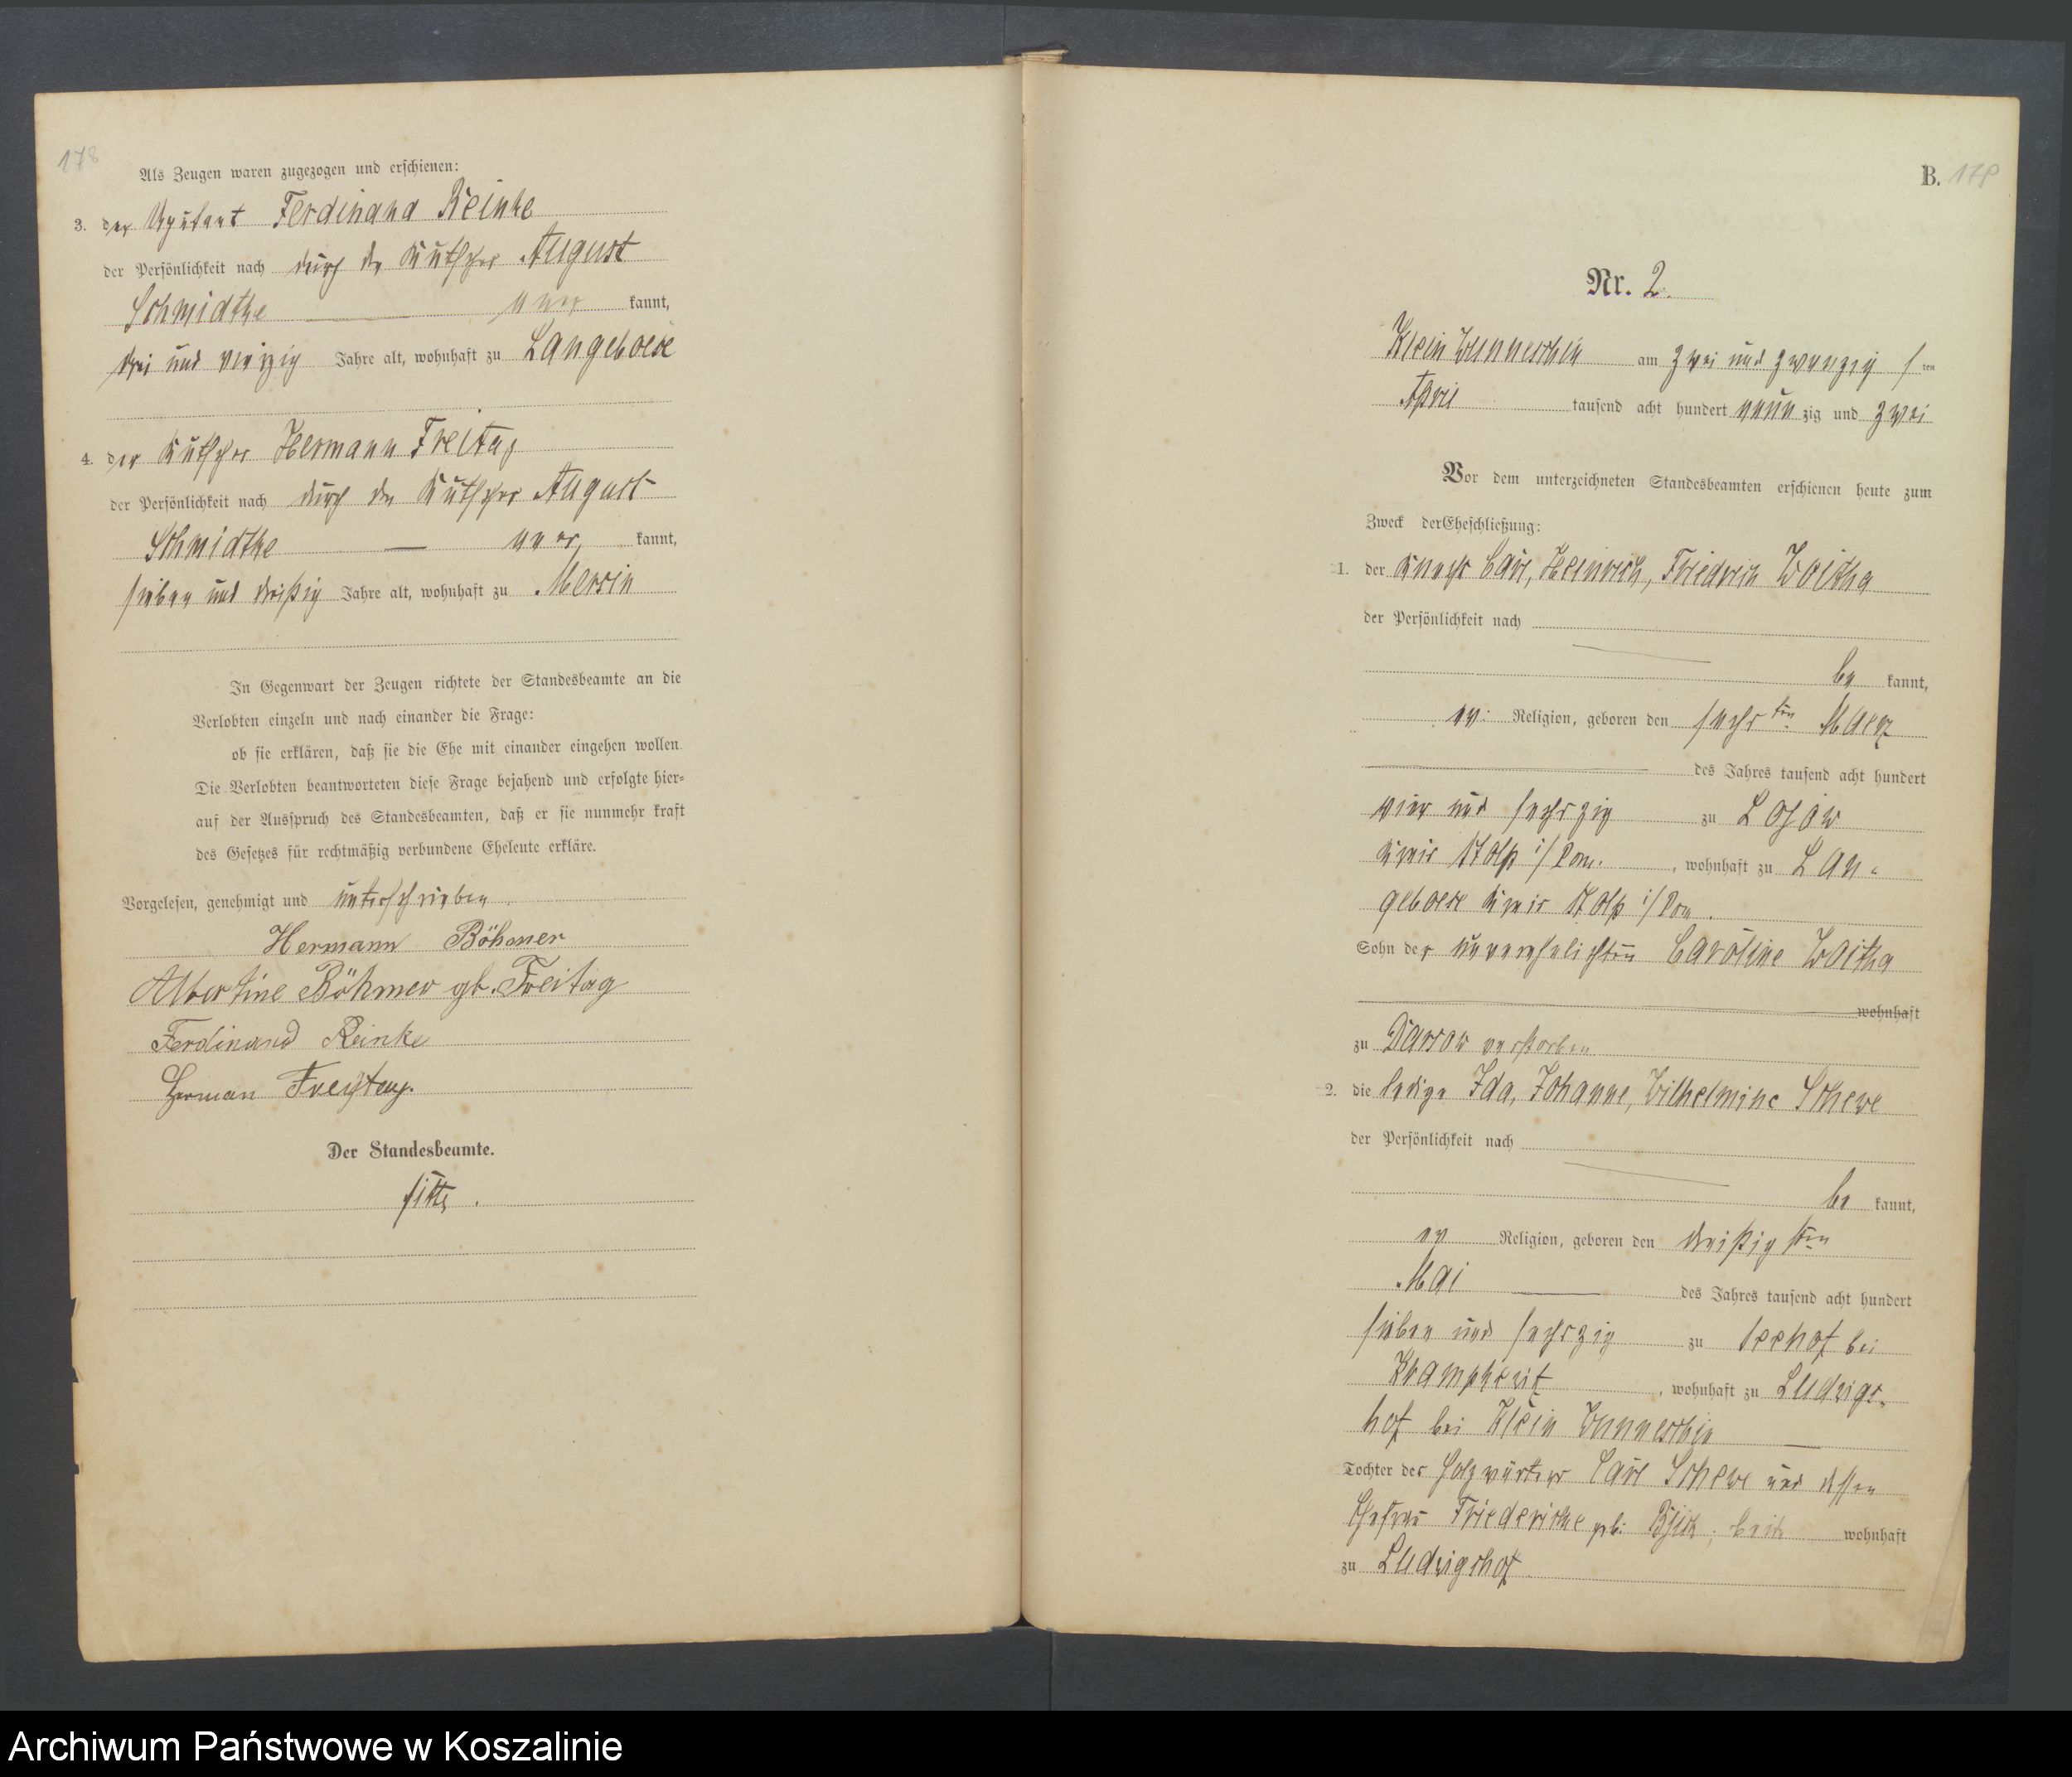 178
Als Zeugen waren zugezogen und erschienen:
3. der Deputant Ferdinand Reinke
der Persönlichkeit nach durch den Kutscher August
Schmidtke aner kannt,
drei und vierzig Jahre alt, wohnhaft zu Langeboese
4. der Kutscher Hermann Freitag
der Persönlichkeit nach durch den Kutscher August
Schmidtke aner kannt,
sieben und dreißig Jahre alt, wohnhaft zu Mersin
In Gegenwart der Zeugen richtete der Standesbeamte an die
Verlobten einzeln und nach einander die Frage:
ob sie erklären, daß sie die Ehe mit einander eingehen wollen.
Die Verlobten beantworteten diese Frage bejahend und erfolgte hier=
auf der Ausspruch des Standesbeamten, daß er sie nunmehr kraft
des Gesetzes für rechtmäßig verbundene Eheleute erkläre.
Vorgelesen, genehmigt und unterschrieben.
Hermann Böhmer
Albertine Böhmer gb. Freitag
Ferdinand Reinke
Herman Freÿtag.
Der Standesbeamte.
B. 179
Nr. 2.
Klein Wunneschin am zwei und zwanzig sten
April tausend acht hundert neun zig und zwei
Vor dem unterzeichneten Standesbeamten erschienen heute zum
Zweck der Eheschließung:
1. der Knecht Carl, Heinrich, Friedrich Woitha
der Persönlichkeit nach
be kannt,
ev. Religion, geboren den sechsten Maerz
des Jahres tausend acht hundert
vier und sechszig zu Lojow
Kreis Stolp i/Pom., wohnhaft zu Lan=
geboese Kreis Stolp i/Pom.
Sohn der unverehelichten Caroline Woitha
wohnhaft
zu Darsow verstorben
2. die ledige Ida, Johanne, Wilhelmine Scheve
der Persönlichkeit nach
be kannt,
ev Religion, geboren den dreißigsten
Mai des Jahres tausend acht hundert
sieben und sechszig zu Seehof bei
Krampkewitz, wohnhaft zu Ludwigs=
hof bei Klein Wunneschin
Tochter des Holzwärter Carl Scheve und dessen
Ehefrau Friedericke geb. beide wohnhaft
zu Ludwigshof
Archiwum Państwowe w Koszalinie